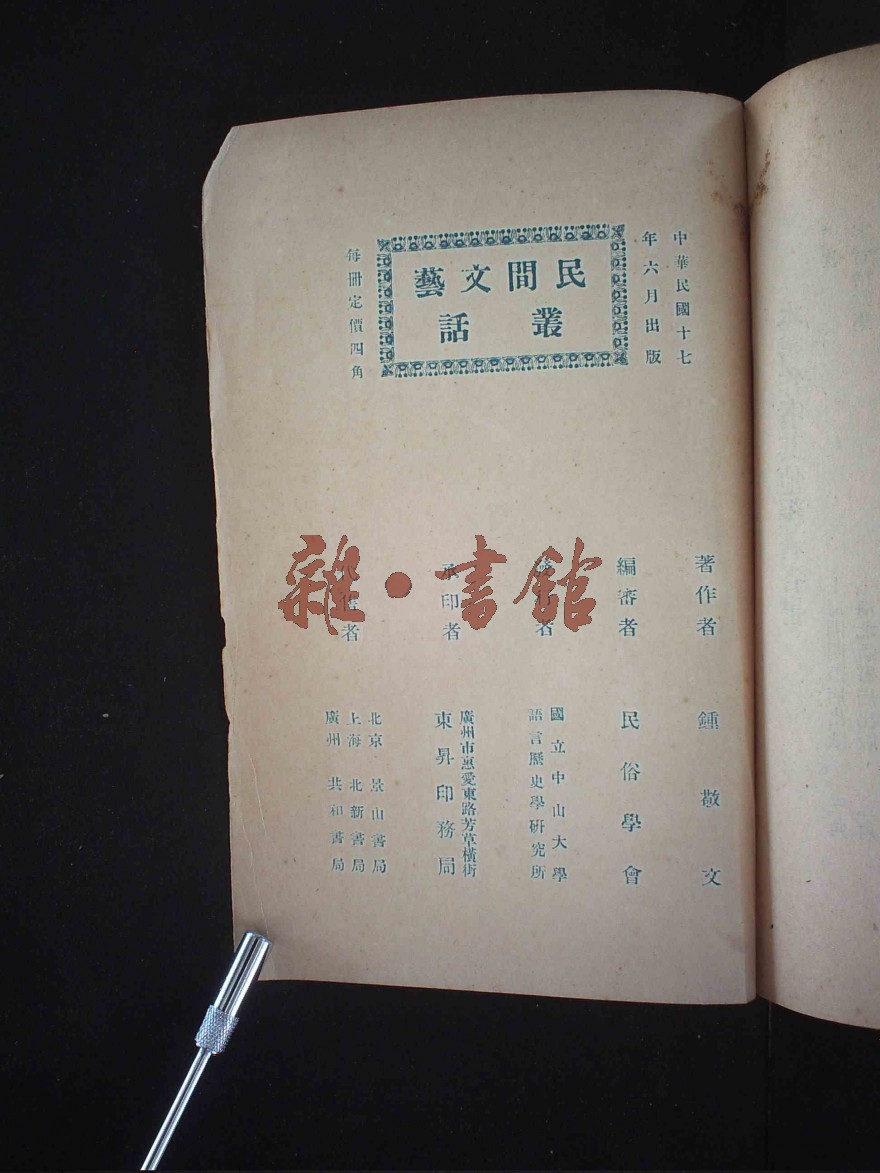 中華民國十七
年六月出版
民間文藝
叢話
每冊定價四角
著作者 鍾敬文
編審者 民俗學會
者 國立中山大學
語言歷史學研究所
印者 廣州市惠愛東路芳草橫街
東昇印務局
者 北京 景山書局
上海 北新書局
廣州 共和書局
雜·書館